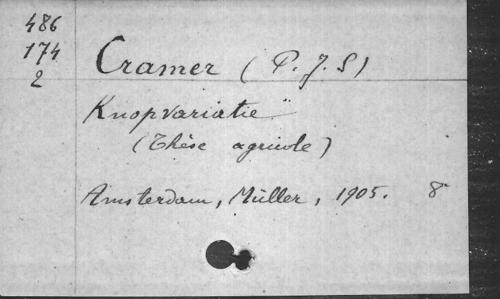 486
174
2
Cramer (P. J. S)
Knopvariatie
(Thèse agricole)
Amsterdam, Müller, 1905. 8